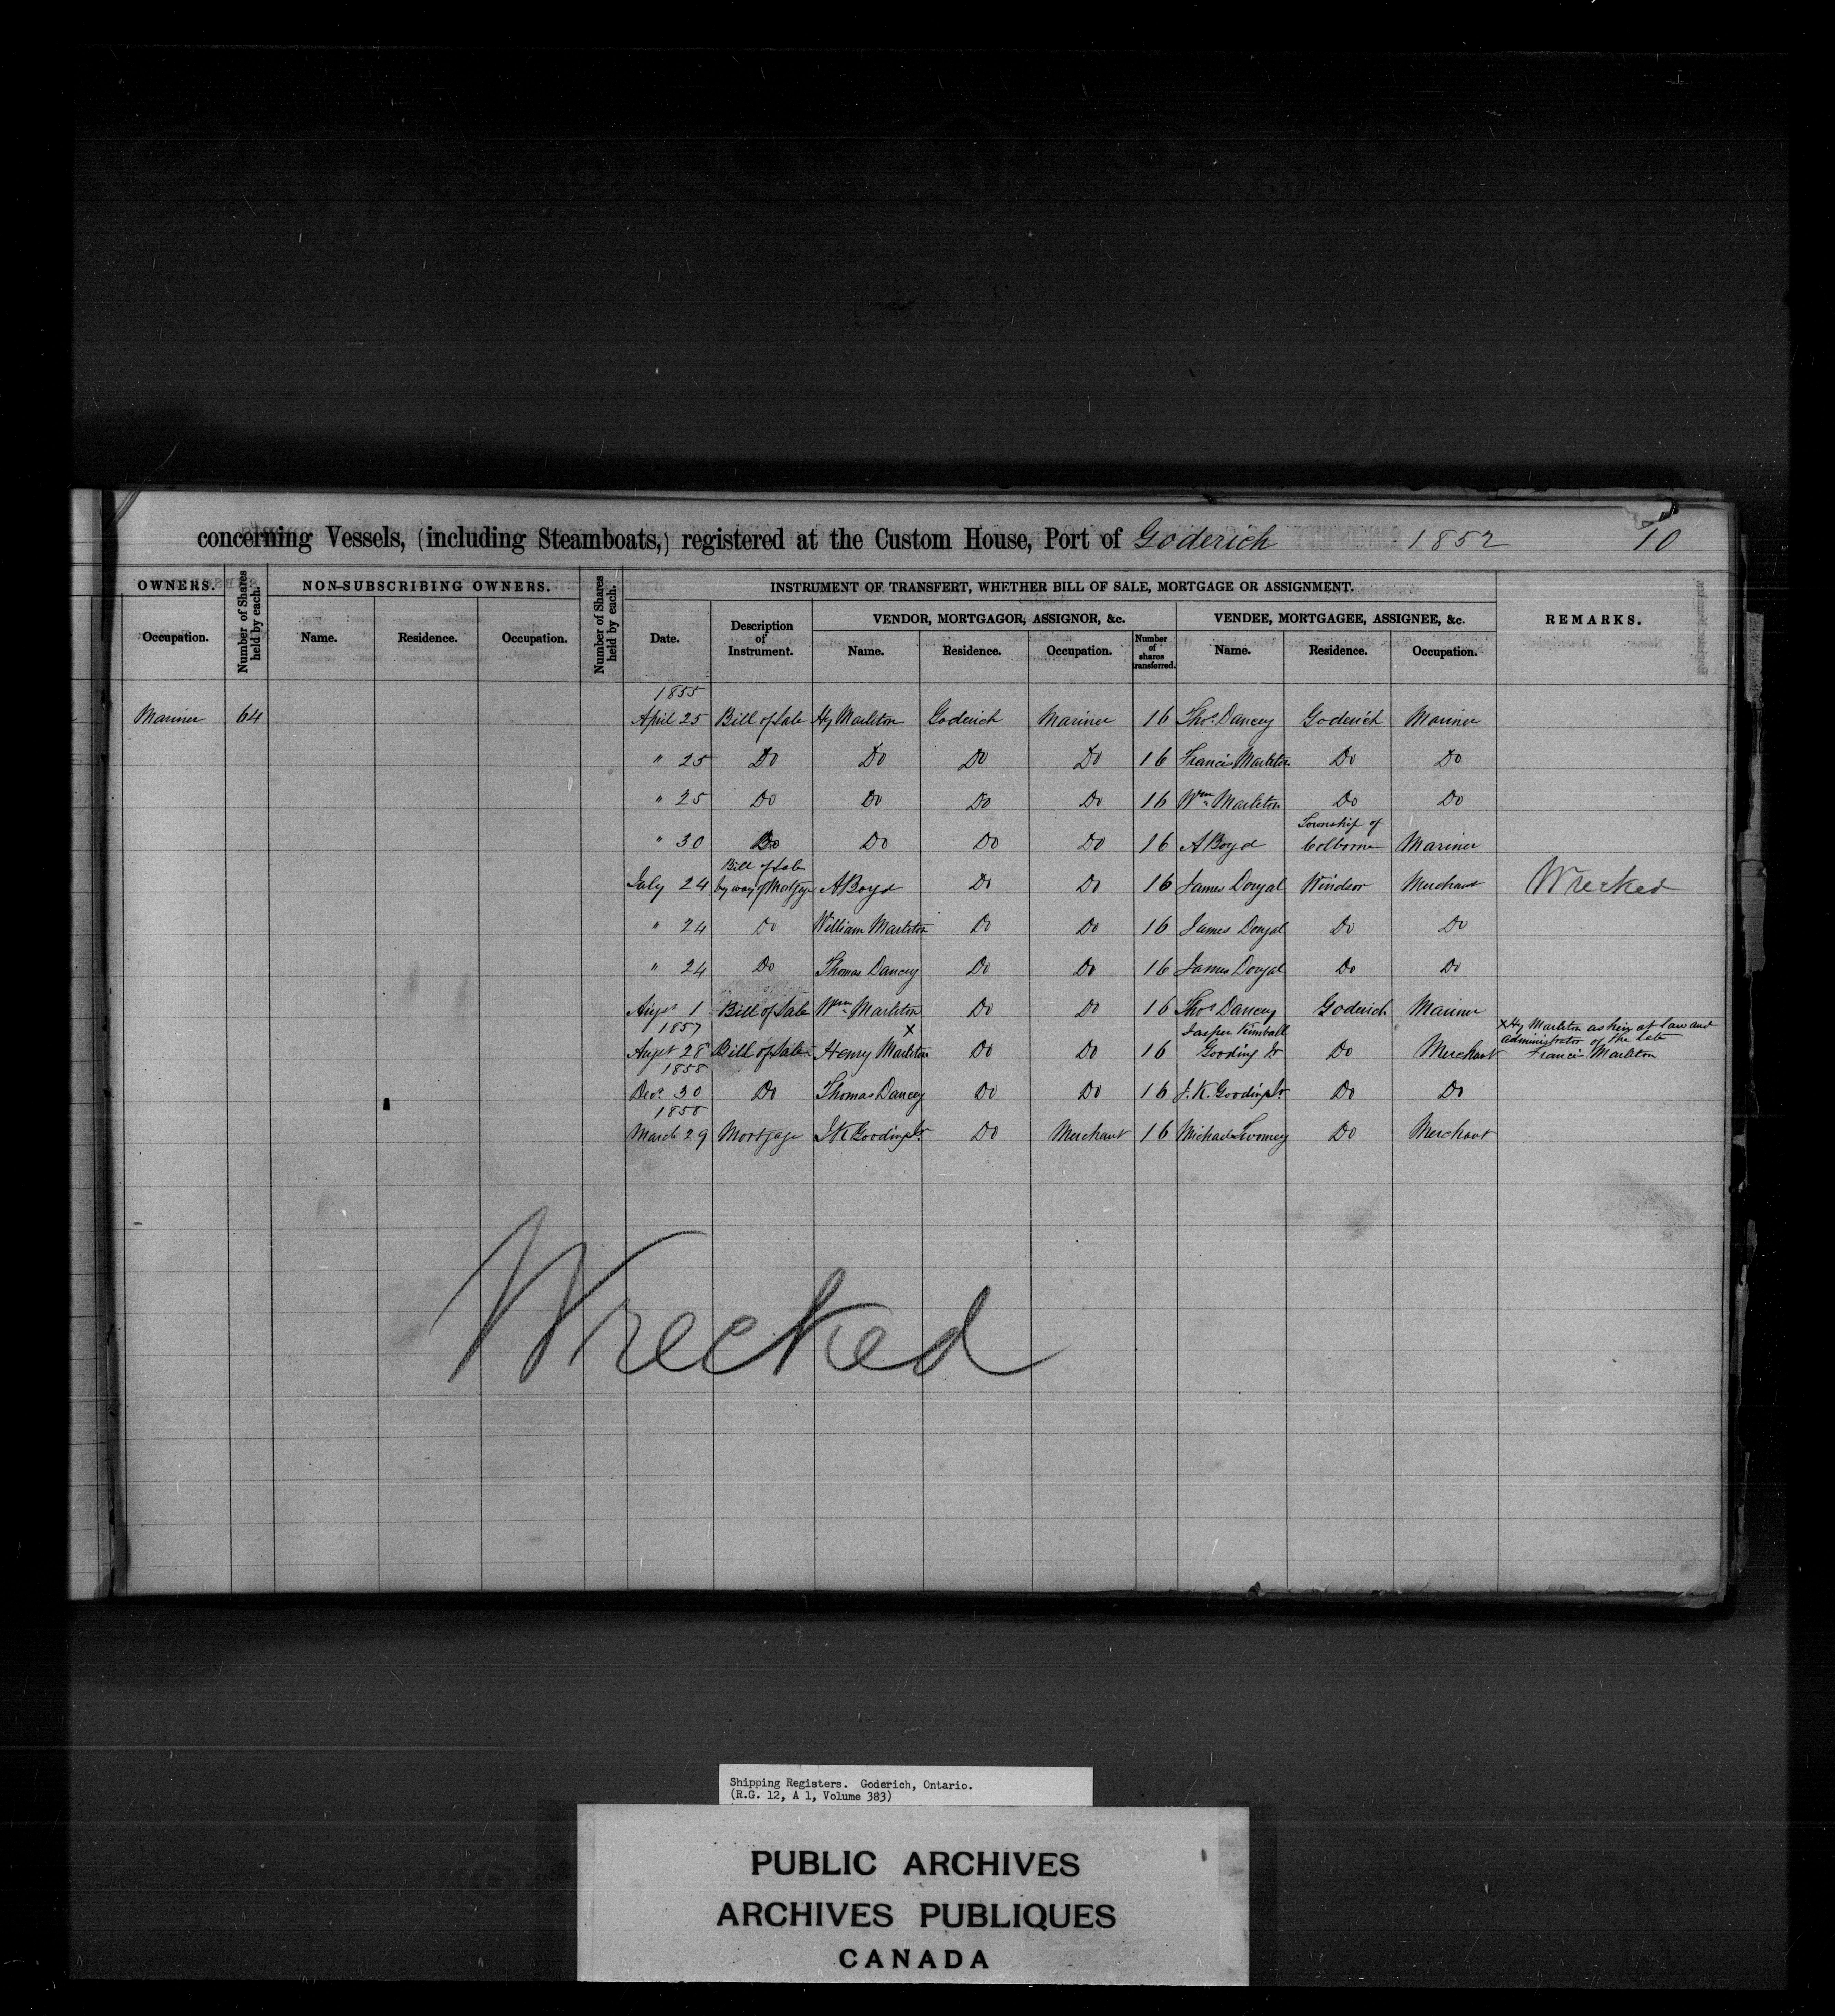 concerning Vessels, (including Steamboats,) registered at the Custom House, Port of Goderich 1852 10
OWNERS. Number of Shares held by each. NON-SUBSCRIBING OWNERS. Number of Shares held by each. INSTRUMENT OF TRANSFERT, WHETHER BILL OF SALE, MORTGAGE OR ASSIGNMENT. REMARKS.
VENDOR, MORTGAGOR, ASSIGNOR, &c. VENDEE, MORTGAGEE, ASSIGNEE, &c.
Occupation. Name. Residence. Occupation. Date. Description of Instrument. Name. Residence. Occupation. Number of shares transferred. Name. Residence. Occupation.
1855
Mariner 64 April 25 Bill of Sale Hy Marlton Goderich Mariner 16 Thos. Dancey Goderich Mariner
" 25 Do Do Do Do 16 Francis Marlton Do Do
" 25 Do Do Do Do 16 Wm. Marlton Do Do
Township of
" 30 Do Do Do Do 16 A Boyd Colborne Mariner
Bill of Sale
July 24 by way of Mortgage A Boyd Do Do 16 James Dougal Windsor Merchant Wrecked
" 24 Do William Marlton Do Do 16 James Dougal Do Do
" 24 Do Thomas Dancey Do Do 16 James Dougal Do Do
Augst 1 Bill of Sale Wm. Marlton Do Do 16 Thos Dancey Goderich Mariner
1857 x Jasper Kimball x Hy Marlton as heir at law and
Augst 28 Bill of Sale Henry Marlton Do Do 16 Gooding Jr Do Merchant administrator of the late
Francis Marlton
1858
Decr. 30 Do Thomas Dancey Do Do 16 J. K. Gooding Jr Do Do
1858
March 29 Mortgage J K Gooding Jr Do Merchant 16 Michael Twomey Do Merchant
Wrecked
Shipping Registers. Goderich, Ontario.
(R.G. 12, A 1, Volume 383)
PUBLIC ARCHIVES
ARCHIVES PUBLIQUES
CANADA